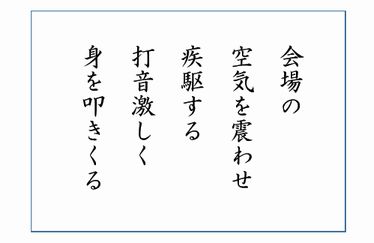 会場の
空気を震わせ
疾駆する
打音激しく
身を叩きくる